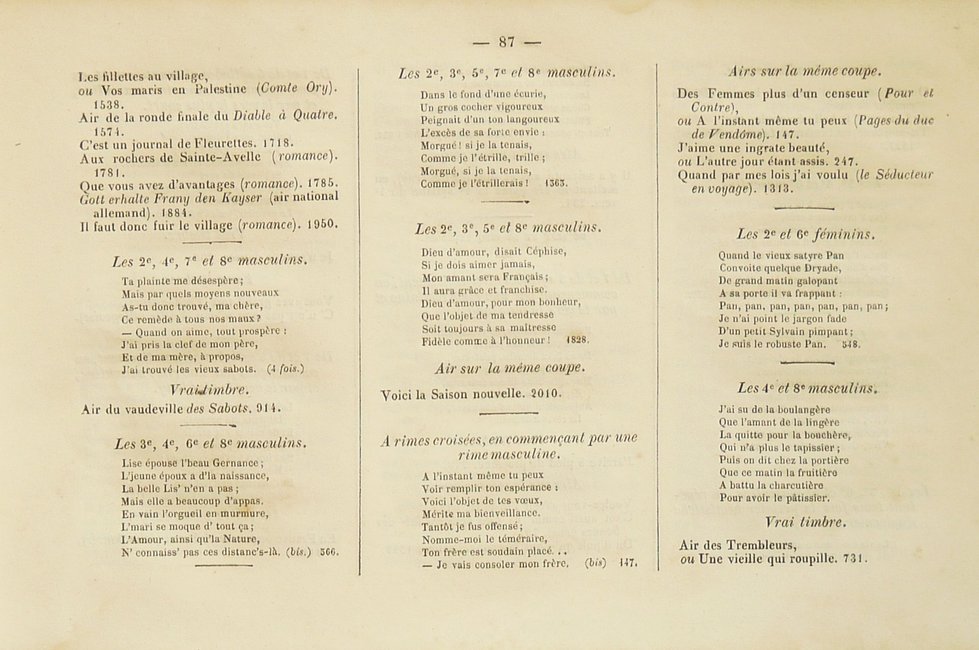 — 87 —
Les fillettes au village,
ou Vos maris en Palestine (Comte Ory).
1538.
Air de la ronde finale du Diable à Quatre.
1574.
C'est un journal de Fleurettes. 1718.
Aux rochers de Sainte-Avelle (romance).
1781.
Que vous avez d'avantages (romance). 1785.
Gott erhalte Frany den Kayser (air national
allemand). 1884.
Il faut donc fuir le village (romance). 1950.
Les 2e, 4e, 7e et 8e masculins.
Ta plainte me désespère;
Mais par quels moyens nouveaux
As-tu donc trouvé, ma chère,
Ce remède à tous nos maux?
— Quand on aime, tout prospère :
J'ai pris la clef de mon père,
Et de ma mère, à propos,
J'ai trouvé les vieux sabots. (4 fois.)
Vrai timbre.
Air du vaudeville des Sabots. 914.
Les 3e, 4e, 6e et 8e masculins.
Lise épouse l'beau Gernance;
L'jeune époux a d'la naissance,
La belle Lis' n'en a pas;
Mais elle a beaucoup d'appas.
En vain l'orgueil en murmure,
L'mari se moque d' tout ça;
L'Amour, ainsi qu'la Nature,
N' connaiss' pas ces distanc's-là. (bis.) 566.
Les 2e, 3e, 5e, 7e et 8e masculins.
Dans le fond d'une écurie,
Un gros cocher vigoureux
Peignait d'un ton langoureux
L'excès de sa forte envie :
Morgué! si je la tenais,
Comme je l'étrille, trille;
Morgué, si je la tenais,
Comme je l'étrillerais! 1363.
Les 2e, 3e, 5e et 8e masculins.
Dieu d'amour, disait Céphise,
Si je dois aimer jamais,
Mon amant sera Français;
Il aura grâce et franchise.
Dieu d'amour, pour mon bonheur,
Que l'objet de ma tendresse
Soit toujours à sa maîtresse
Fidèle comme à l'honneur! 1828.
Air sur la même coupe.
Voici la Saison nouvelle. 2010.
A rimes croisées, en commençant par une
rime masculine.
A l'instant même tu peux
Voir remplir ton espérance :
Voici l'objet de tes vœux,
Mérite ma bienveillance.
Tantôt je fus offensé;
Nomme-moi le téméraire,
Ton frère est soudain placé. ..
— Je vais consoler mon frère. (bis) 147.
Airs sur la même coupe.
Des Femmes plus d'un censeur (Pour et
Contre),
ou A l'instant même tu peux (Pages du duc
de Vendôme). 147.
J'aime une ingrate beauté,
ou L'autre jour étant assis. 247.
Quand par mes lois j'ai voulu (le Séducteur
en voyage). 1313.
Les 2e et 6e féminins.
Quand le vieux satyre Pan
Convoite quelque Dryade,
De grand matin galopant
A sa porte il va frappant :
Pan, pan, pan, pan, pan, pan, pan;
Je n'ai point le jargon fade
D'un petit Sylvain pimpant;
Je suis le robuste Pan. 548.
Les 4e et 8e masculins.
J'ai su de la boulangère
Que l'amant de la lingère
La quitte pour la bouchère,
Qui n'a plus le tapissier;
Puis on dit chez la portière
Que ce matin la fruitière
A battu la charcutière
Pour avoir le pâtissier.
Vrai timbre.
Air des Trembleurs,
ou Une vieille qui roupille. 731.